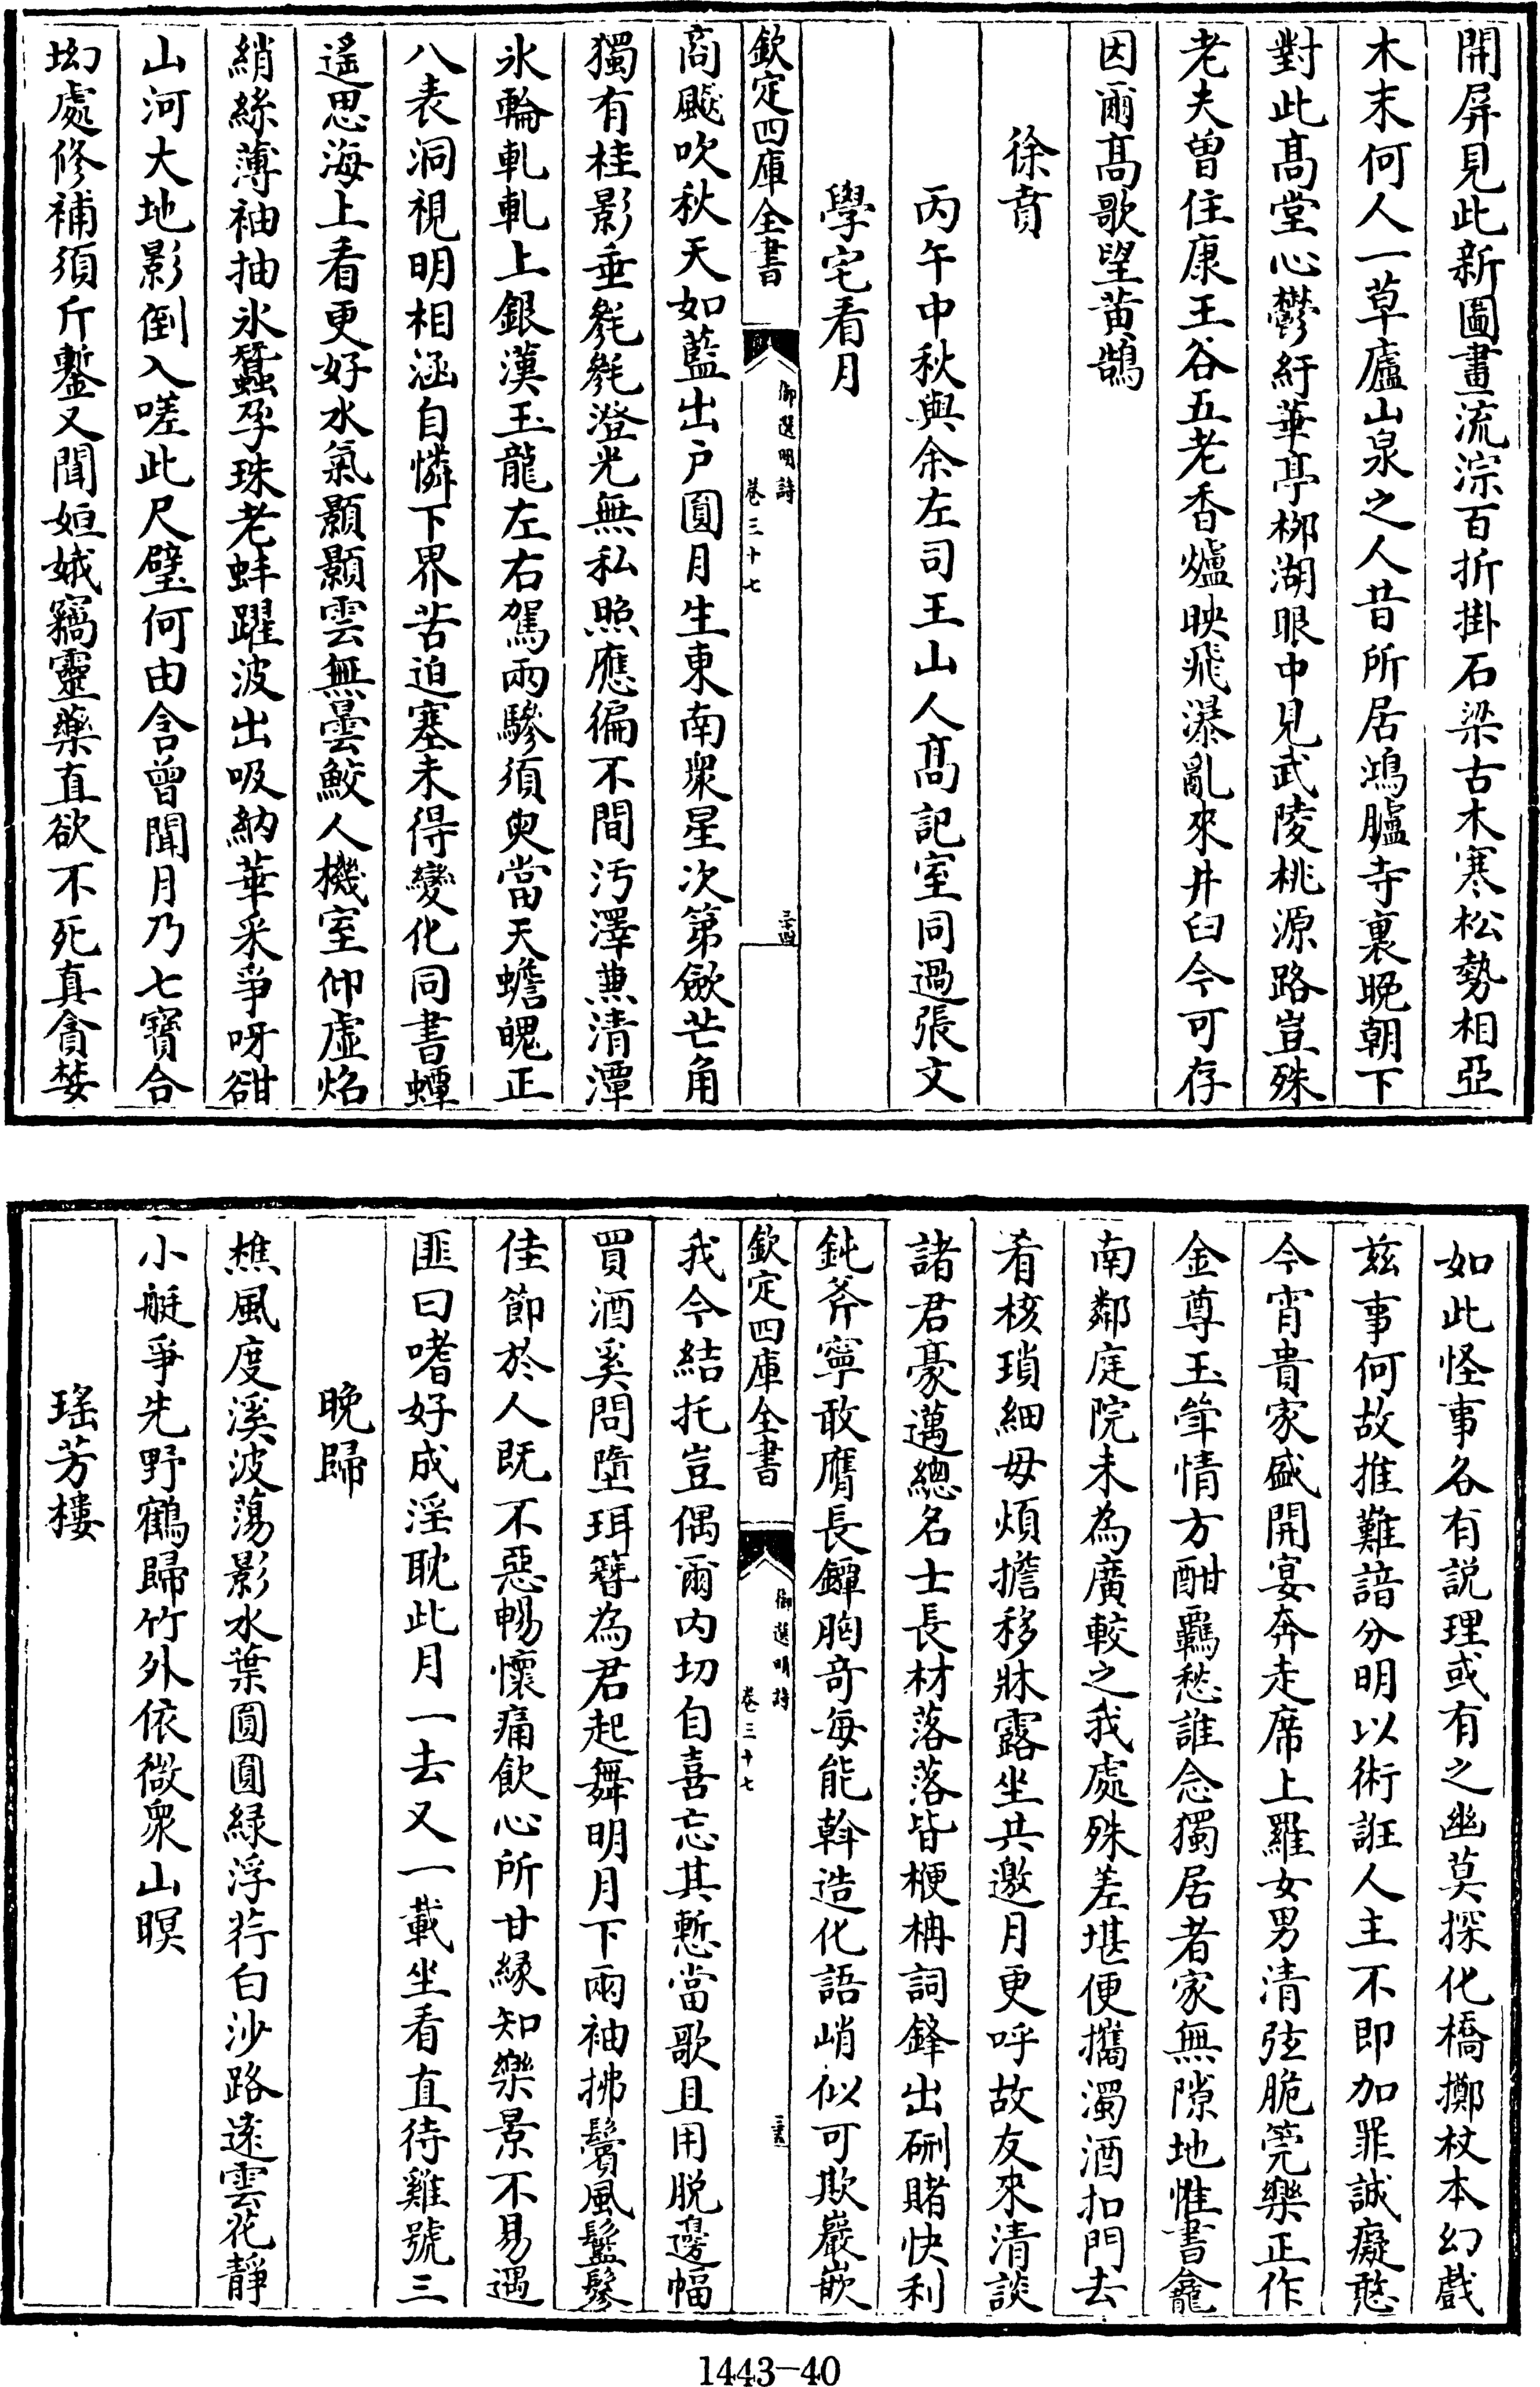 開屏見此新圖畫流淙百折掛石梁古木寒松勢相亞
木末何人一草廬山泉之人昔所居鴻臚寺裏晚朝下
對此髙堂心鬱紆華亭栁湖眼中見武陵桃源路豈殊
老夫曽住康王谷五老香爐映飛瀑亂來井臼今可存
因爾髙歌望黄鵠
徐賁
丙午中秋與余左司王山人髙記室同過張文
學宅看月
欽定四庫全書
御選明詩
卷三十七
三十四
商飈吹秋天如藍出户圓月生東南衆星次第斂芒角
獨有桂影垂毿毿澄光無私照應徧不間汚澤兼清潭
氷輪軋軋上銀漢玉龍左右駕兩驂須臾當天蟾魄正
八表洞視明相涵自憐下界苦迫塞未得變化同書蟫
遥思海上看更好水氣顥顥雲無曇鮫人機室仰虚焰
綃絲薄袖抽氷蠶孕珠老蚌躍波出吸納華采爭呀㟏
山河大地影倒入嗟此尺璧何由含曾聞月乃七寳合
坳處修補須斤鏨又聞姮娥竊靈藥直欲不死真貪婪
如此怪事各有説理或有之幽莫探化橋擲杖本幻戲
兹事何故推難諳分明以術誑人主不即加罪誠癡憨
今宵貴家盛開宴奔走席上羅女男清弦脆筦樂正作
金尊玉斝情方酣羈愁誰念獨居者家無隙地惟書龕
南鄰庭院未為廣較之我處殊差堪便攜濁酒扣門去
肴核瑣細毋煩擔移牀露坐共邀月更呼故友來清談
諸君豪邁總名士長材落落皆楩柟詞鋒出硎賭快利
鈍斧寧敢膺長鐔胸奇每能斡造化語峭似可欺巖嵌
欽定四庫全書
御選明詩
卷三十七
三十五
我今結托豈偶爾内切自喜忘其慙當歌且用脱邊幅
買酒奚問墮珥簪為君起舞明月下兩袖拂鬢風鬖鬖
佳節於人既不惡暢懷痛飲心所甘縁知樂景不易遇
匪曰嗜好成淫耽此月一去又一載坐看直待雞號三
晚歸
樵風度溪波蕩影水葉圓圓緑浮荇白沙路遠雲花靜
小艇爭先野鶴歸竹外依微衆山暝
瑤芳樓
1443-40